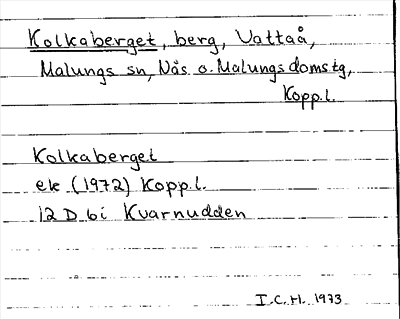 Kolkaberget, berg, Vattaå,
Malungs sn, Nås o. Malungs domstg,
Kopp.l.
Kolkaberget
ek (1972) Kopp.l.
12 D 6i Kvarnudden
I.C.H. 1973